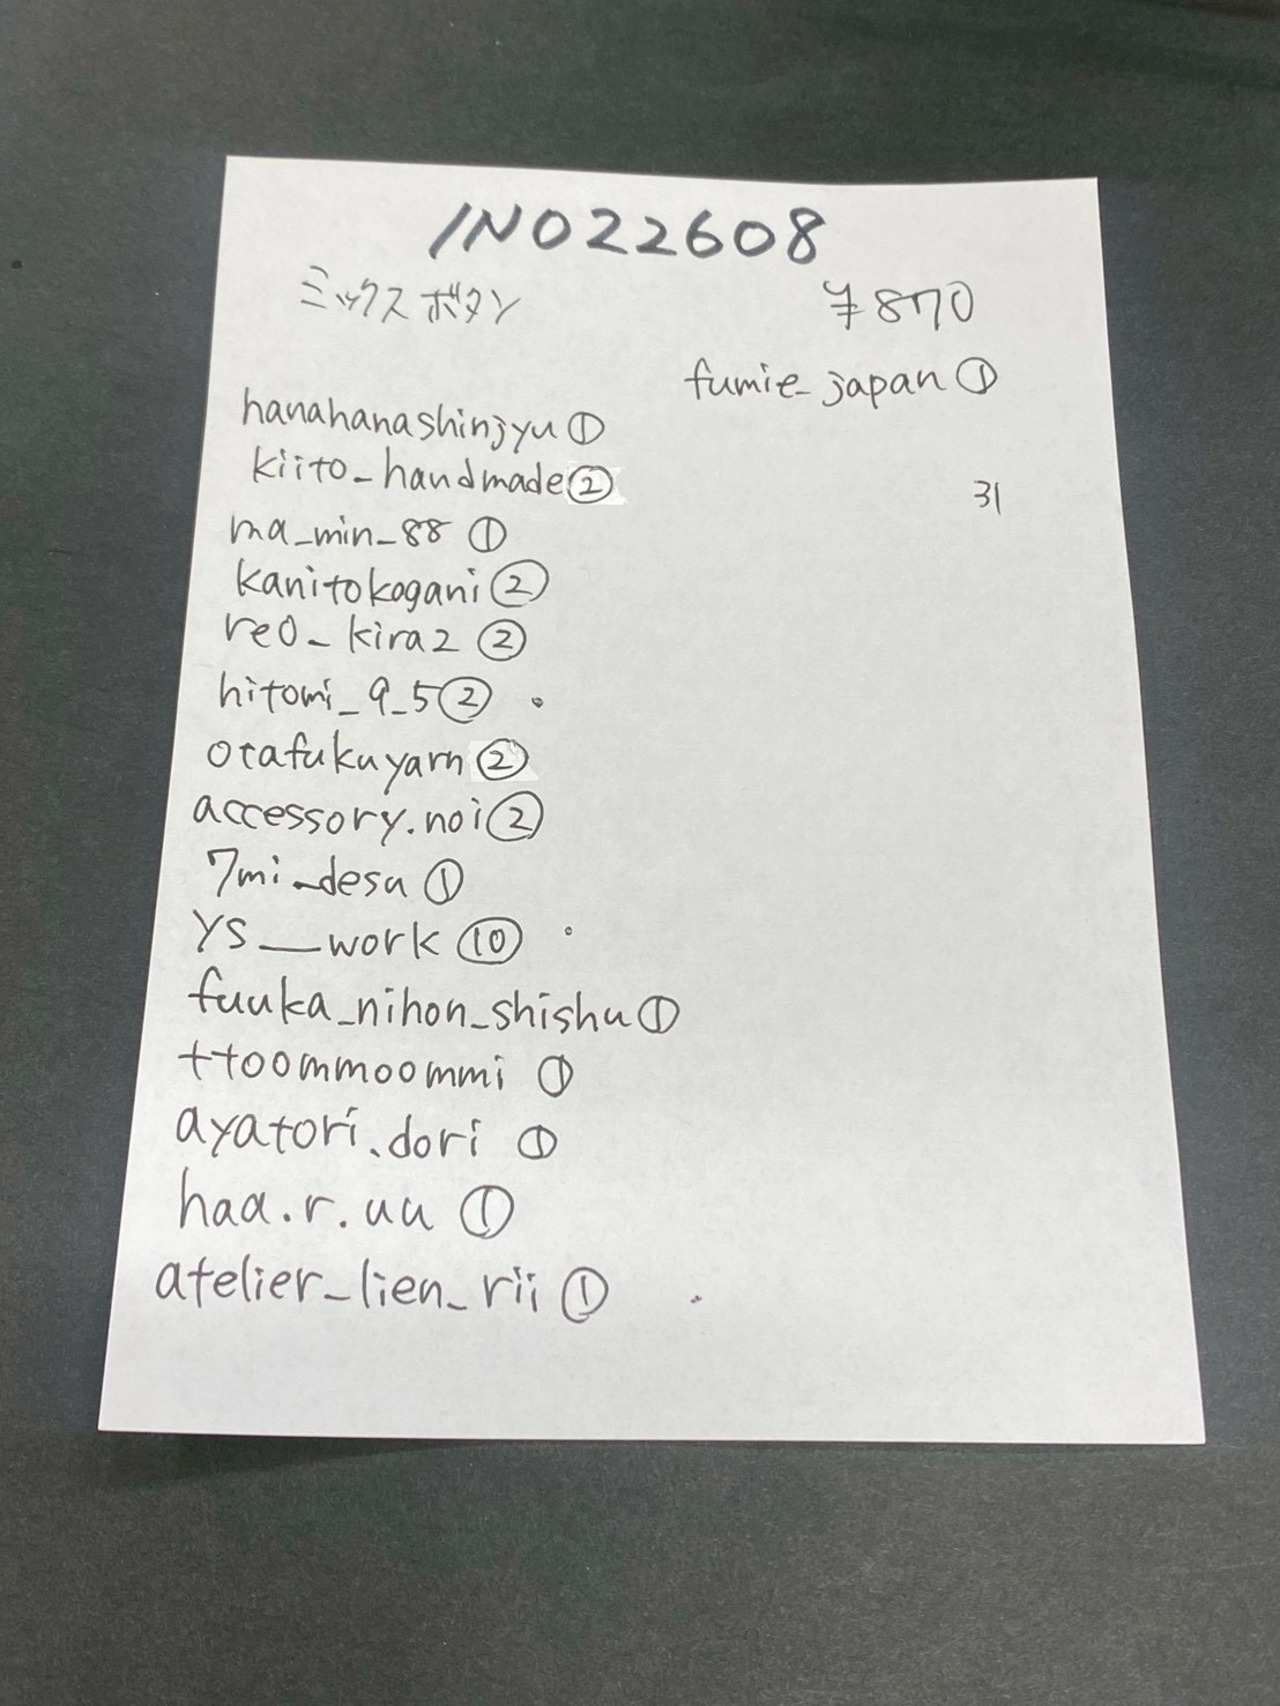 INO22608
ミックスボタン ¥870
hanahanashinjyu ①
kiito_handmade ②
ma_min_88 ①
kanitokogani ②
reo_kira2 ②
hitomi_9_5 ②
otafukuyarn ②
accessory.noi ②
7mi_desu ①
ys__work ⑩
fuuka_nihon_shishu ①
ttoommoommi ①
ayatori.dori ①
haa.r.uu ①
atelier_lien_rii ①
fumie_japan ①
31